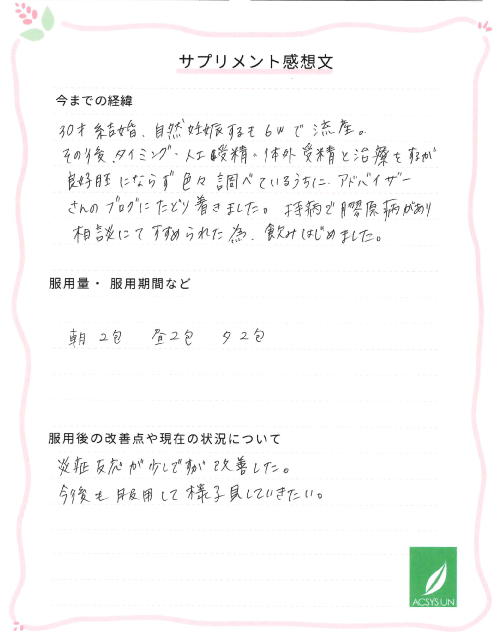 サプリメント感想文
今までの経緯
30才 結婚、自然妊娠するも 6wで 流産。
その後、タイミング・人工授精・体外受精と治療をするが
良好胚にならず 色々 調べているうちに、アドバイザー
さんのブログにたどり着きました。持病で膠原病があり
相談にて すすめられた為、飲みはじめました。
服用量・ 服用期間など
朝 2包 昼2包 夕2包
服用後の改善点や現在の状況について
炎症反応が少しですが 改善した。
今後も 服用して 様子見していきたい。
ACSYS UN